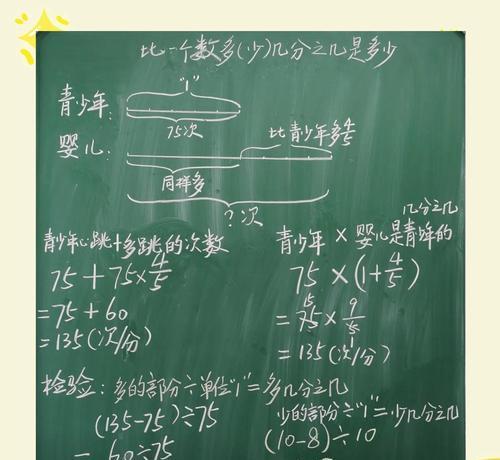 比一个数多(少)几分之几是多少
"1"
青少年:
75次
比青少年多4/5
婴儿:
同样多
?次
青少年心跳+多跳的次数
75+75×4/5
=75+60
=135(次/分)
几分之几
青少年×婴儿是青少年的
75×(1+4/5)
=75×9/5
15
1
=135(次/分)
检验:多的部分÷单位"1"=多几分之几
(135-75)÷75
=60÷75
少的部分÷"1"=少几分之几
(10-8)÷10